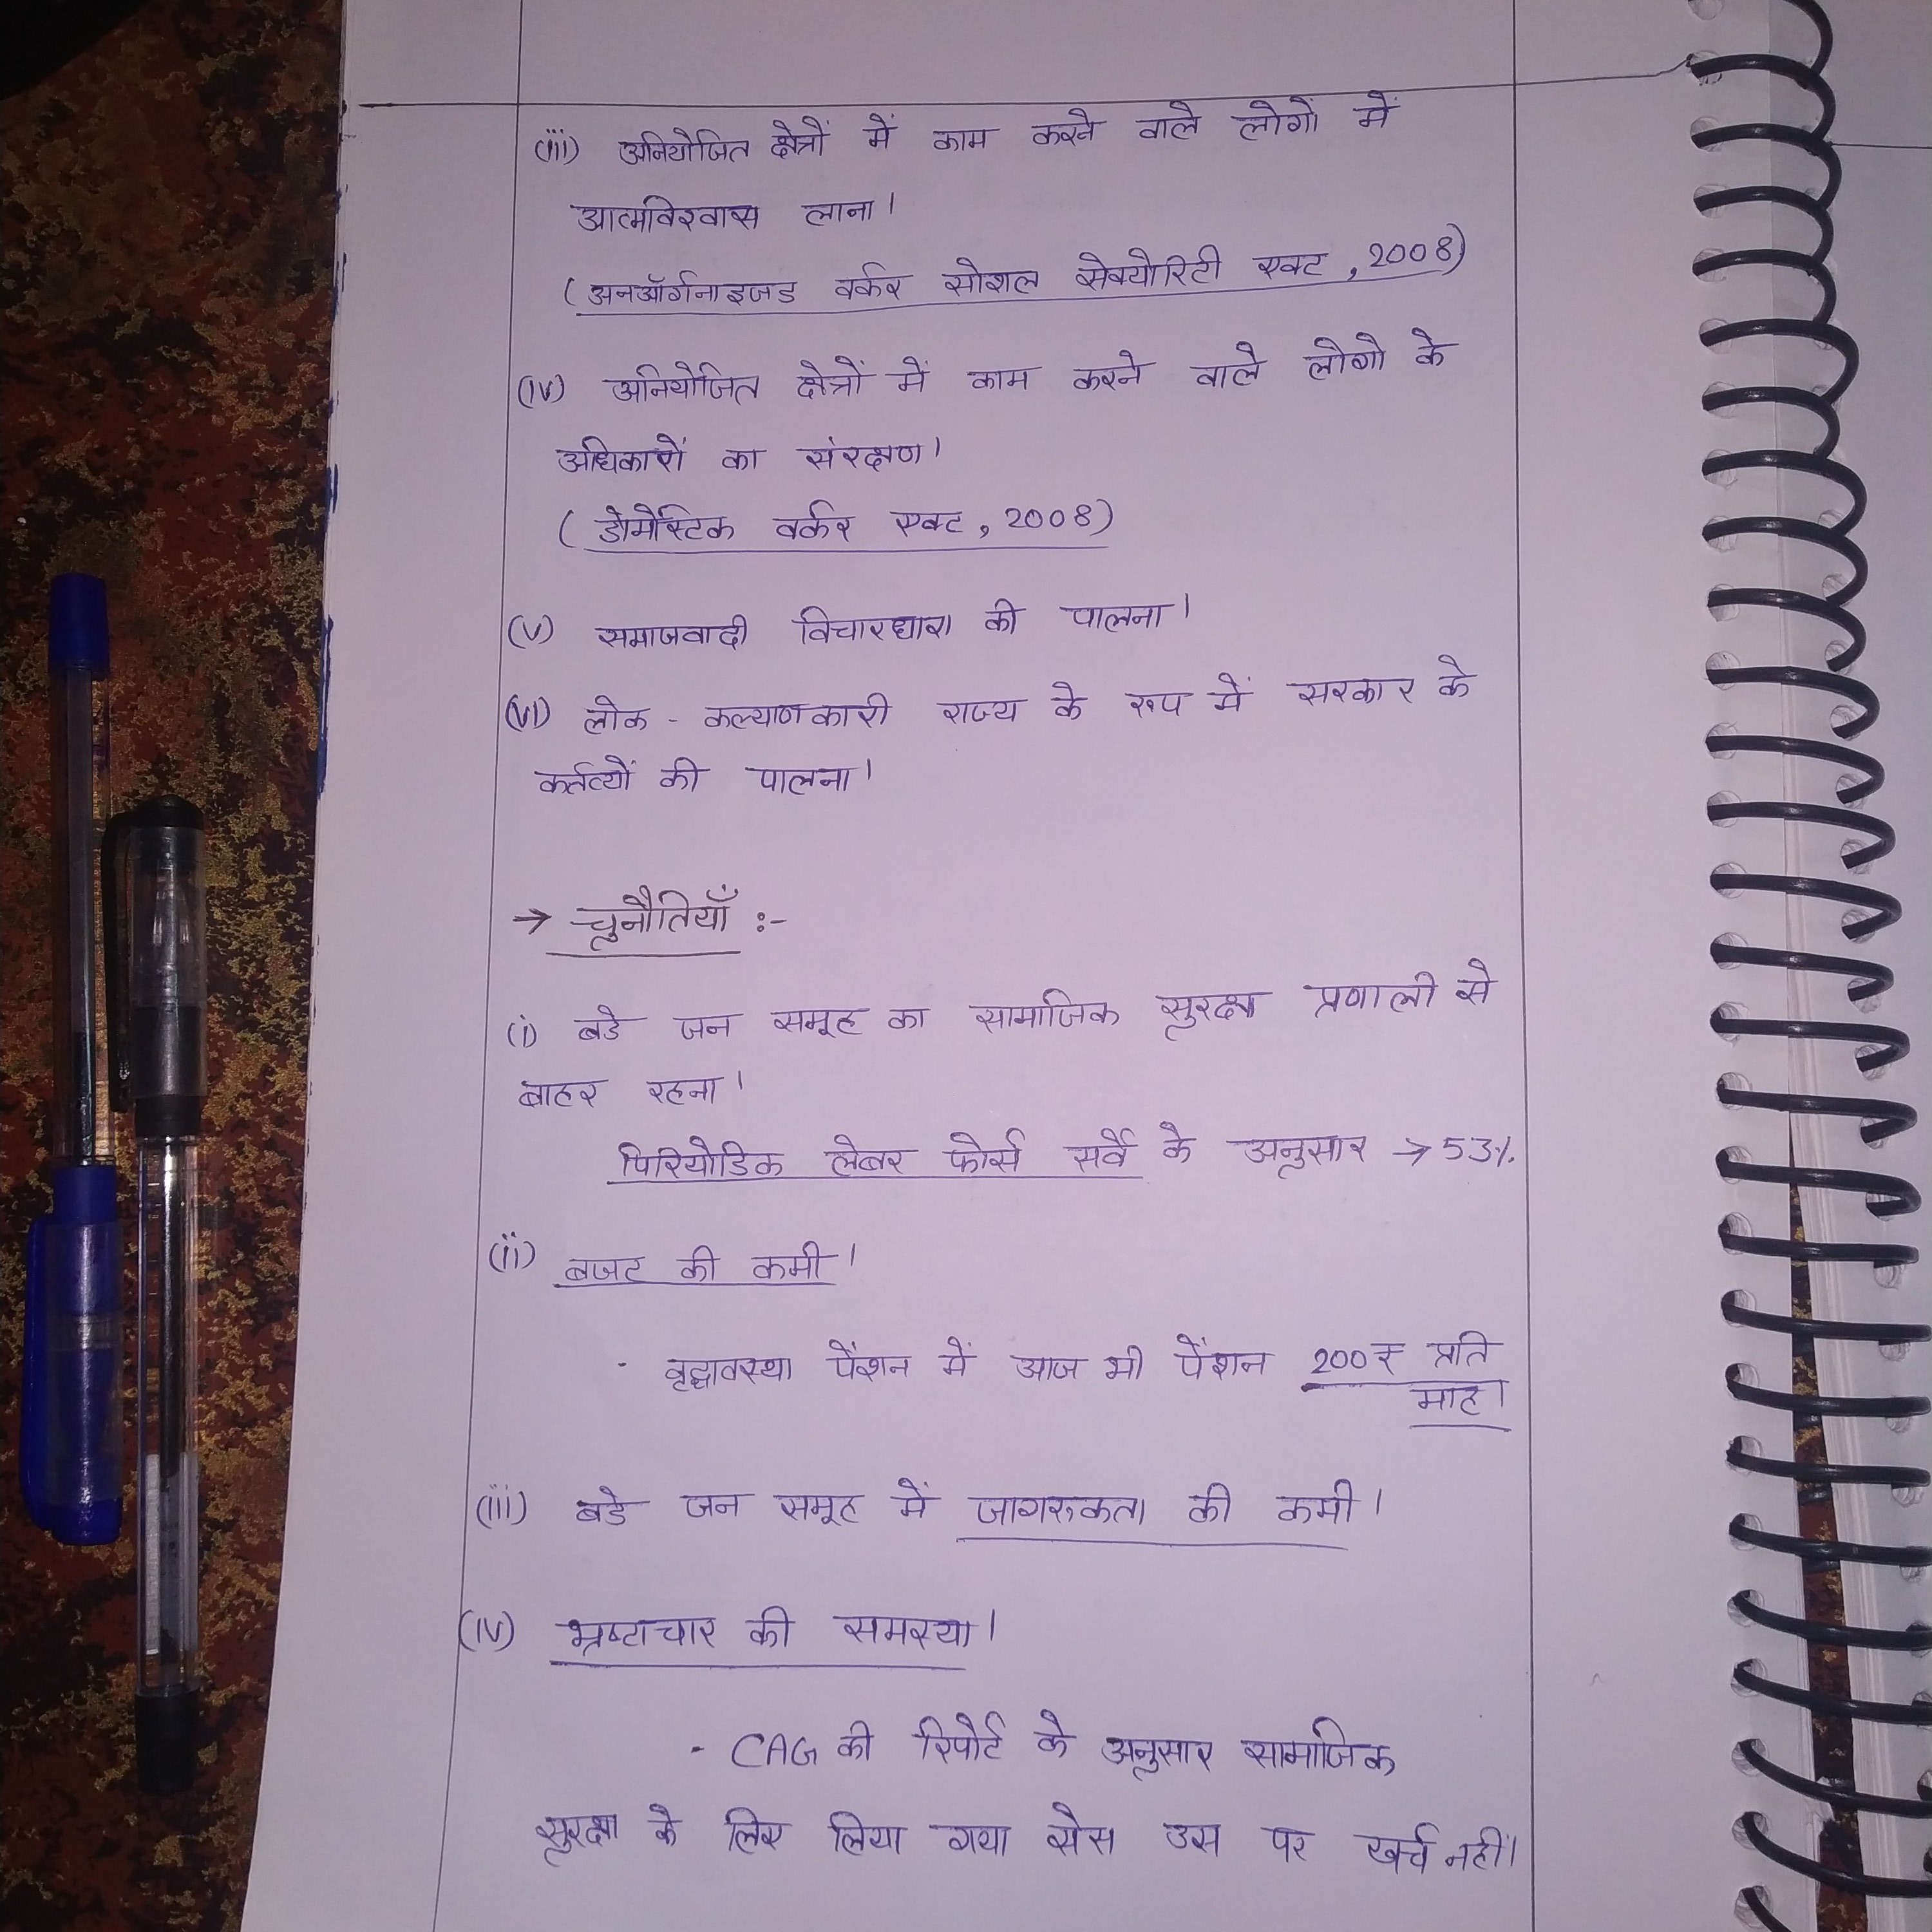 (iii) अनियोजित क्षेत्रों में काम करने वाले लोगों में
आत्मविश्वास लाना।
(अनऑर्गनाइजड वर्कर सोशल सेक्योरिटी एक्ट, 2008)
(iv) अनियोजित क्षेत्रों में काम करने वाले लोगो के
अधिकारों का संरक्षण।
(डोमेस्टिक वर्कर एक्ट, 2008)
(v) समाजवादी विचारधारा की पालना।
(vi) लोक - कल्याणकारी राज्य के रूप में सरकार के
कर्तव्यों की पालना।
→ चुनौतियाँ :-
(i) बडे जन समूह का सामाजिक सुरक्षा प्रणाली से
बाहर रहना।
पिरियोडिक लेबर फोर्स सर्वे के अनुसार → 53%
(ii) बजट की कमी।
- वृद्धावस्था पेंशन में आज भी पेंशन 200₹ प्रति
माह।
(iii) बडे जन समूह में जागरुकता की कमी।
(iv) भ्रष्टाचार की समस्या।
- CAG की रिपोर्ट के अनुसार सामाजिक
सुरक्षा के लिए लिया गया सेस उस पर खर्च नहीं।